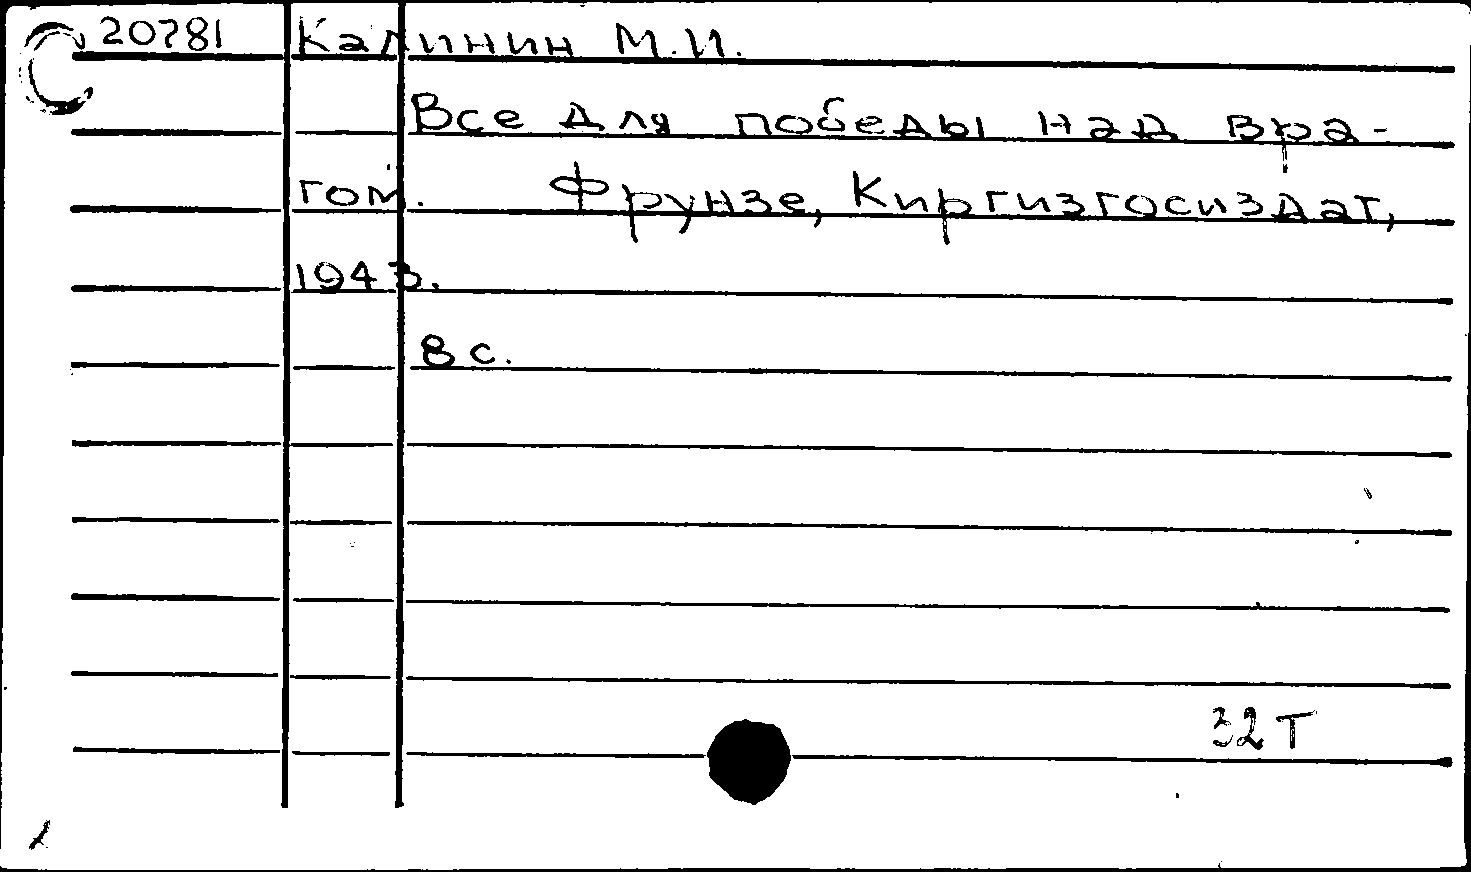 20781 Калинин М.И.
Все для победы над вра-
гом. Фрунзе, Киргизгосиздат,
1943.
8 с.
32 Т